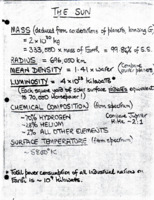 THE SUN
MASS (deduced from accelerations of planets, knowing G)
= 2 × 10³⁰ kg
= 333,000 × mass of Earth = 99.86% of S.S.
RADIUS = 696,000 km
MEAN DENSITY = 1.41 × water
LUMINOSITY = 4 × 10²³ kilowatts*
(Each square yard of solar surface equivalent to
70,000 horsepower!)
CHEMICAL COMPOSITION (from spectrum)
~70% HYDROGEN
~28% HELIUM
~2% ALL OTHER ELEMENTS
Compare Jupiter
SURFACE TEMPERATURE (from spectrum)
5800°K
* Total power consumption of all industrial nations on
Earth is ~ kilowatts.